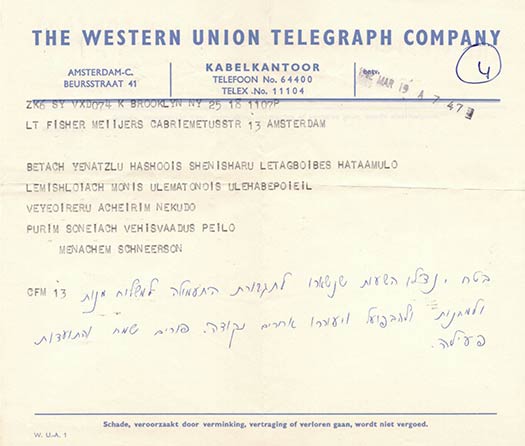 THE WESTERN UNION TELEGRAPH COMPANY
AMSTERDAM-C.
BEURSSTRAAT 41
KABELKANTOOR
TELEFOON No. 64400
TELEX.No. 11104
MAR 19 A 7 47
4
ZK6 SY VXD074 K BROOKLYN NY 25 18 1107P
LT FISHER MEIIJERS GABRIEMETUSSTR 13 AMSTERDAM
BETACH YENATZLU HASHOOIS SHENISHARU LETAGBOIBES HATAAMULO
LEMISHLOIACH MONIS ULEMATONOIS ULEHABEPOIEIL
VEYEOIRERU ACHEIRIM NEKUDO
PURIM SONEIACH VEHISVAADUS PEILO
MENACHEM SCHNEERSON
CFM 13
בטח ינצלו השעות שנשארו לתגבורת התעמולה למשלוח מנות
ולמתנות ולהבפועל ויעוררו אחרים נקודה. פורים שמח והתועדות
פעילה.
Schade, veroorzaakt door verminking, vertraging of verloren gaan, wordt niet vergoed.
W. U.-A. 1